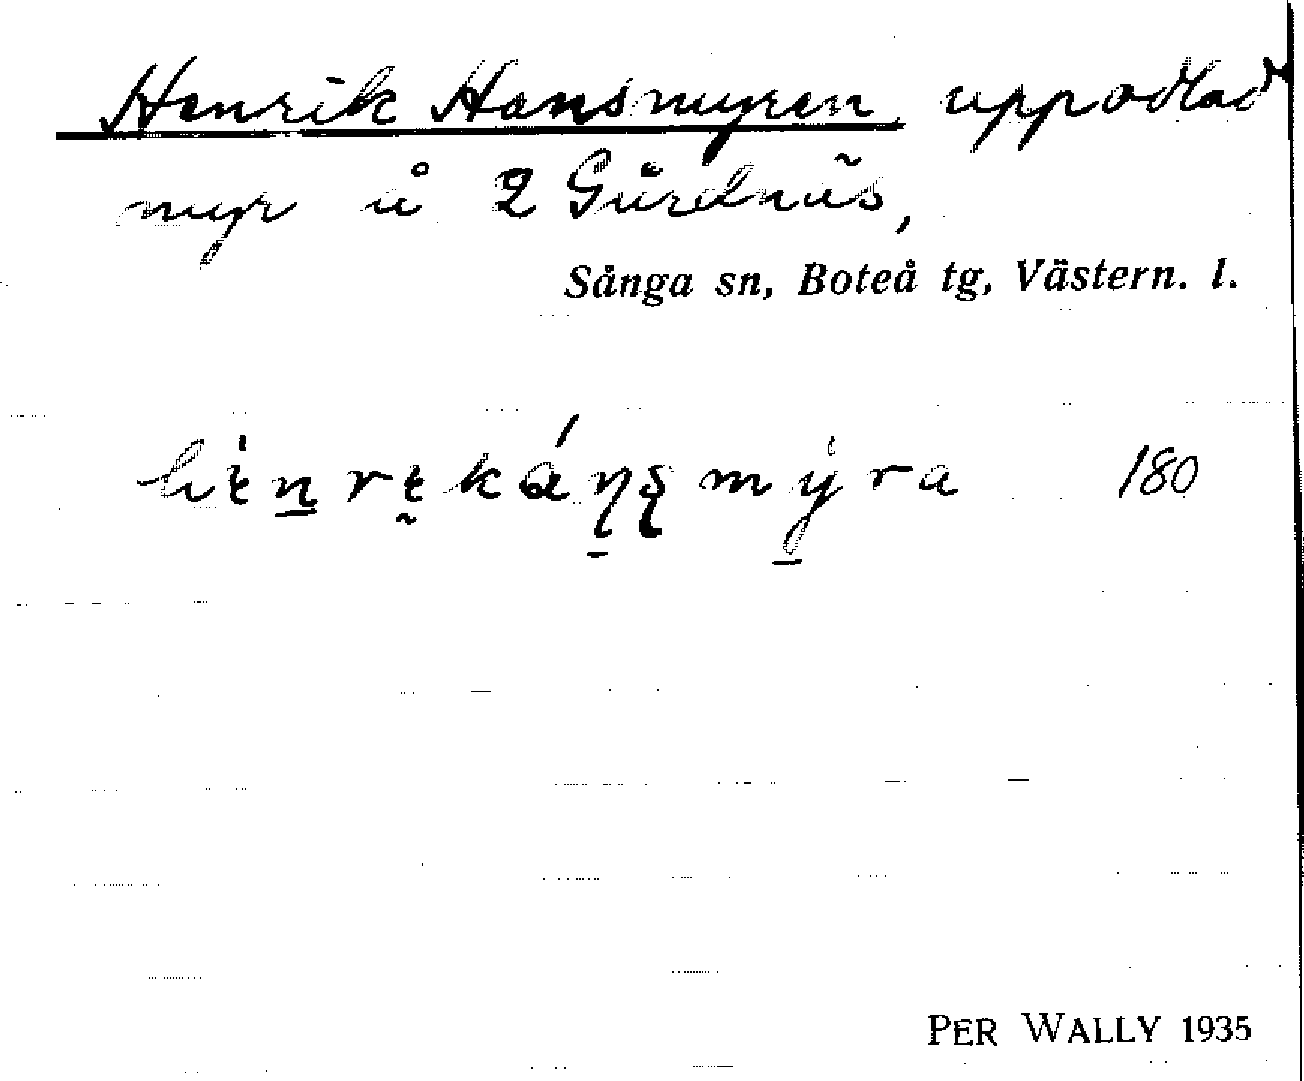 Henrik Hansmyren, uppodlad
myr å 2 Gärdnäs,
Sånga sn, Boteå tg, Västern. l.
180
PER WALLY 1935